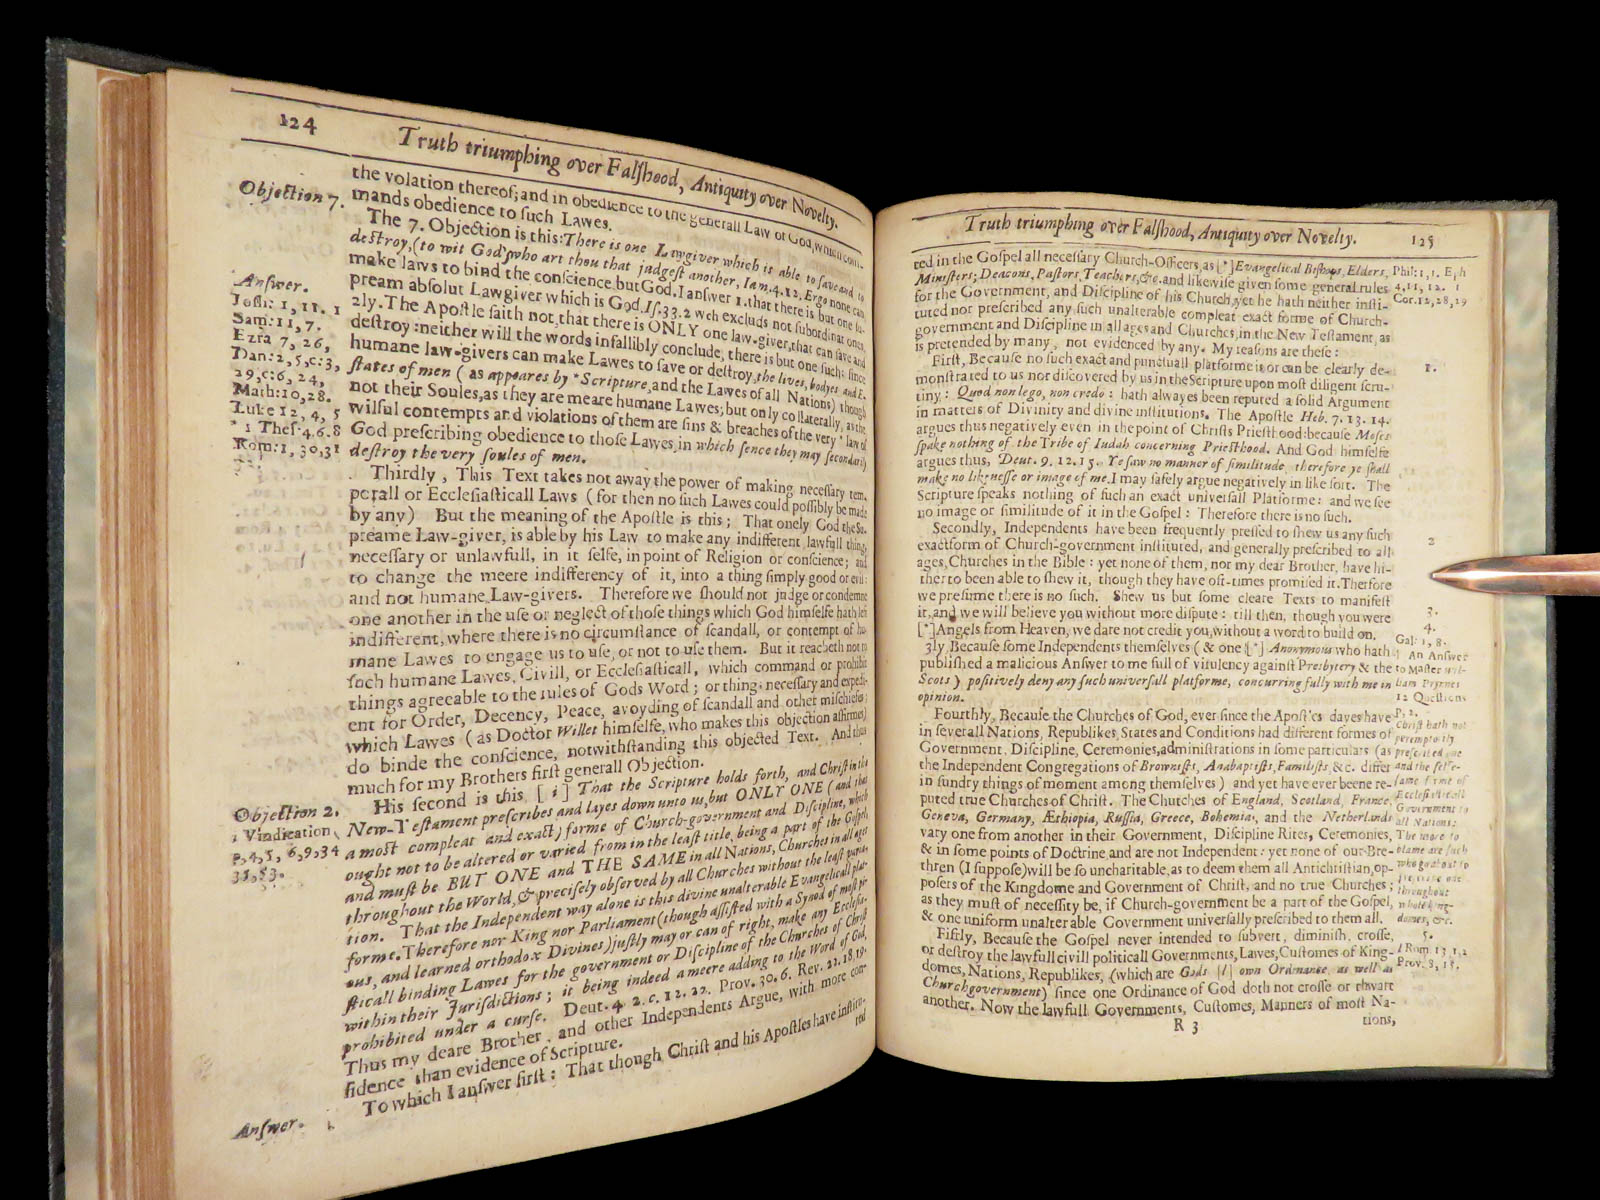 124
Truth triumphing over Falſhood, Antiquity over Novelty.
the volation thereof; and in obedience to the generall Law of God, which com-
mands obedience to ſuch Lawes.
Objection 7.
The 7. Objection is this: There is one Lawgiver which is able to ſave and to
deſtroy, (to wit God) who art thou that judgeſt another, Iam, 4. 12, Ergo none can
make laws to bind the conſcience but God. I anſwer 1. that there is but one ſu-
pream abſolut Lawgiver which is God, Iſ. 33. 2 wch excluds not ſubordinat ones,
2ly. The Apoſtle ſaith not, that there is ONLY one law-giver, that can ſave and
deſtroy: neither will the words infallibly conclude, there is but one ſuch: ſince
humane law-givers can make Lawes to ſave or deſtroy, the lives, bodyes and E-
ſtates of men ( as appeares by * Scripture, and the Lawes of all Nations) though
not their Soules, as they are meare humane Lawes; but only collaterally, as the
wilful contempts and violations of them are ſins & breaches of the very * law of
God preſcribing obedience to thoſe Lawes, in which ſence they may ſecondarily
deſtroy the very ſoules of men.
Anſwer.
Joſh: 1, 11. 1
Sam: 11, 7.
Ezra 7, 26,
Dan: 2, 5, c: 3,
29, c: 6, 24,
Math: 10, 28.
Luke 12, 4, 5
* 1 Theſ: 4. 6. 8
Rom: 1, 30, 31
Thirdly, This Text takes not away the power of making neceſſary tem-
porall or Eccleſiaſticall Laws ( for then no ſuch Lawes could poſſibly be made
by any) But the meaning of the Apoſtle is this; That onely God the Su-
preame Law-giver, is able by his Law to make any indifferent, lawfull thing,
neceſſary or unlawfull, in it ſelfe, in point of Religion or conſcience; and
to change the meere indifferency of it, into a thing ſimply good or evil:
and not humane Law-givers. Therefore we ſhould not judge or condemne
one another in the uſe or neglect of thoſe things which God himſelfe hath left
indifferent, where there is no circumſtance of ſcandall, or contempt of hu-
mane Lawes to engage us to uſe, or not to uſe them. But it reacheth not to
ſuch humane Lawes, Civill, or Eccleſiaſticall, which command or prohibit
things agreeable to the rules of Gods Word; or things neceſſary and expedi-
ent for Order, Decency, Peace, avoyding of ſcandall and other miſchiefes;
which Lawes ( as Doctor Willet himſelfe, who makes this objection affirmes)
do binde the conſcience, notwithſtanding this objected Text. And thus
much for my Brothers firſt generall Objection.
Objection 2.
1 Vindication,
p, 4, 5, 6, 9, 34
His ſecond is this, [ 1 ] That the Scripture holds forth, and Chriſt in the
New-Teſtament preſcribes and layes down unto us, but ONLY ONE (and that
a moſt compleat and exact) forme of Church-government and Diſcipline, which
ought not to be altered or varied from in the leaſt title, being a part of the Goſpel,
and muſt be BUT ONE and THE SAME in all Nations, Churches in all ages
throughout the World, & preciſely obſerved by all Churches without the leaſt varia-
tion. That the Independent way alone is this divine unalterable Evangelicall plat-
forme. Therefore nor King nor Parliament (though aſſiſted with a Synod of moſt pi-
ous, and learned orthodox Divines) juſtly may or can of right, make any Eccleſia-
ſticall binding Lawes for the government or Diſcipline of the Churches of Chriſt
within their Juriſdictions; it being indeed a meere adding to the Word of God,
prohibited under a curſe. Deut. 4. 2. c. 12. 32. Prov. 30. 6. Rev. 22. 18, 19.
Thus my deare Brother, and other Independents Argue, with more con-
fidence than evidence of Scripture.
Anſwer.
To which I anſwer firſt: That though Chriſt and his Apoſtles have inſtitu-
ted
Truth triumphing over Falſhood, Antiquity over Novelty.
125
ted in the Goſpel all neceſſary Church-Officers, as [*] Evangelical Biſhops, Elders,
Miniſters; Deacons, Paſtors, Teachers, &c. and likewiſe given ſome general rules
for the Government, and Diſcipline of his Church, yet he hath neither inſti-
tuted nor preſcribed any ſuch unalterable compleat exact forme of Church-
government and Diſcipline in all ages and Churches, in the New Teſtament, as
is pretended by many, not evidenced by any. My reaſons are theſe:
Phil: 1, 1. Eph
4, 11, 12. 1
Cor. 12, 28, 29
1.
Firſt, Becauſe no ſuch exact and punctuall platforme is or can be clearly de-
monſtrated to us nor diſcovered by us in the Scripture upon moſt diligent ſcru-
tiny: Quod non lego, non credo: hath alwayes been reputed a ſolid Argument
in matters of Divinity and divine inſtitutions. The Apoſtle Heb. 7. 13. 14.
argues thus negatively even in the point of Chriſts Prieſthood: becauſe Moſes
ſpake nothing of the Tribe of Iudah concerning Prieſthood. And God himſelfe
argues thus, Deut. 9. 12. 15. Ye ſaw no manner of ſimilitude, therefore ye ſhall
make no likeneſſe or image of me. I may ſafely argue negatively in like ſort. The
Scripture ſpeaks nothing of ſuch an exact univerſall Platforme: and we ſee
no image or ſimilitude of it in the Goſpel: Therefore there is no ſuch.
2
Secondly, Independents have been frequently preſſed to ſhew us any ſuch
exact form of Church-government inſtituted, and generally preſcribed to all
ages, Churches in the Bible: yet none of them, nor my dear Brother, have hi-
therto been able to ſhew it, though they have oft-times promiſed it. Therfore
we preſume there is no ſuch. Shew us but ſome cleare Texts to manifeſt
it, and we will believe you without more diſpute: till then, though you were
[*] Angels from Heaven, we dare not credit you, without a word to build on.
3.
4.
Gal: 1, 8.
3ly Becauſe ſome Independents themſelves ( & one [*] Anonymous who hath
publiſhed a malicious Anſwer to me full of virulency againſt Presbytery & the
Scots ) poſitively deny any ſuch univerſall platforme, concurring fully with me in
opinion.
An Anſwer
to Maſter Wil-
liam Prynnes
12 Queſtions
p, 2.
Chriſt hath not
peremptorily
preſcribed one
and the ſelfe-
ſame forme of
Eccleſiaſticall
Government to
all Nations:
The more to
blame are ſuch
who goe about to
preſcribe one
throughout
whole king-
domes, &c.
Fourthly, Becauſe the Churches of God, ever ſince the Apoſtles dayes have
in ſeverall Nations, Republikes, States and Conditions had different formes of
Government, Diſcipline, Ceremonies, adminiſtrations in ſome particulars (as
the Independent Congregations of Browniſts, Anabaptiſts, Familiſts, &c. differ
in ſundry things of moment among themſelves) and yet have ever beene re-
puted true Churches of Chriſt. The Churches of England, Scotland, France,
Geneva, Germany, Æthiopia, Ruſſia, Greece, Bohemia, and the Netherlands
vary one from another in their Government, Diſcipline Rites, Ceremonies,
& in ſome points of Doctrine, and are not Independent: yet none of our Bre-
thren (I ſuppoſe) will be ſo uncharitable, as to deem them all Antichriſtian, op-
poſers of the Kingdome and Government of Chriſt, and no true Churches;
as they muſt of neceſſity be, if Church-government be a part of the Goſpel,
& one uniform unalterable Government univerſally preſcribed to them all.
5.
l Rom. 13, 1, 2
Prov. 8, 15.
Fiftly, Becauſe the Goſpel never intended to ſubvert, diminiſh, croſſe,
or deſtroy the lawfull civill politicall Governments, Lawes, Cuſtomes of King-
domes, Nations, Republikes, (which are Gods [l] own Ordinance as well as
Churchgovernment) ſince one Ordinance of God doth not croſſe or thwart
another. Now the lawfull Governments, Cuſtomes, Manners of moſt Na-
R 3
tions,